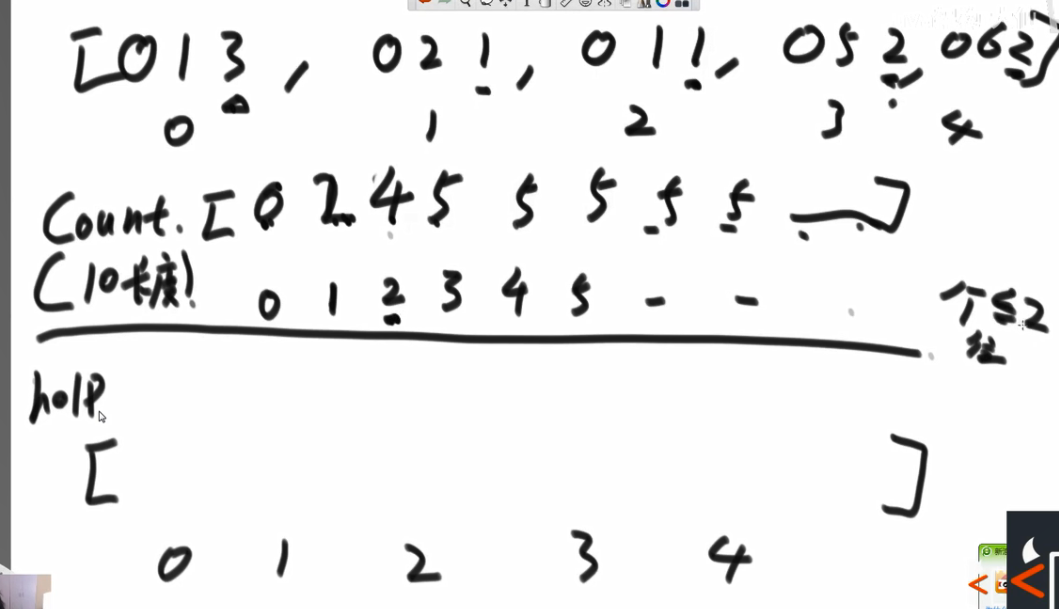 [013, 021, 011, 052, 062]
0 1 2 3 4
Count. [0 2 4 5 5 5 5 5 ]
(10长度) 0 1 2 3 4 5 - -
个≤2
位
help
[ ]
0 1 2 3 4